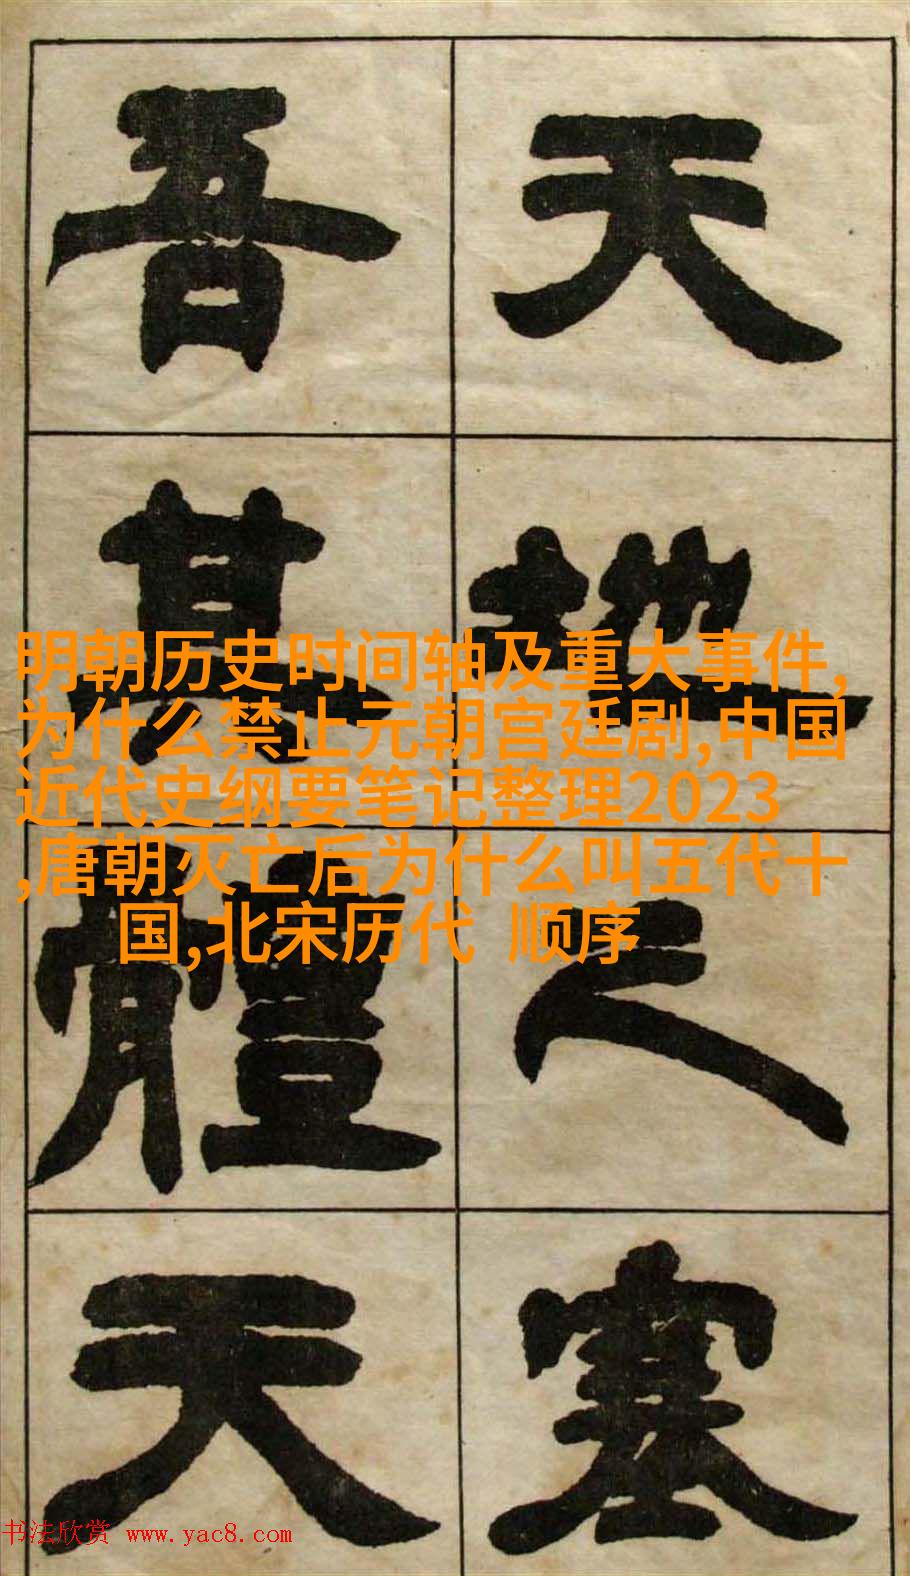 天地之塞
吾其體天
明朝历史时间轴及重大事件,
为什么禁止元朝宫廷剧,中国
近代史纲要笔记整理2023
,唐朝灭亡后为什么叫五代十
国,北宋历代 顺序
书法欣赏 www.yac8.com